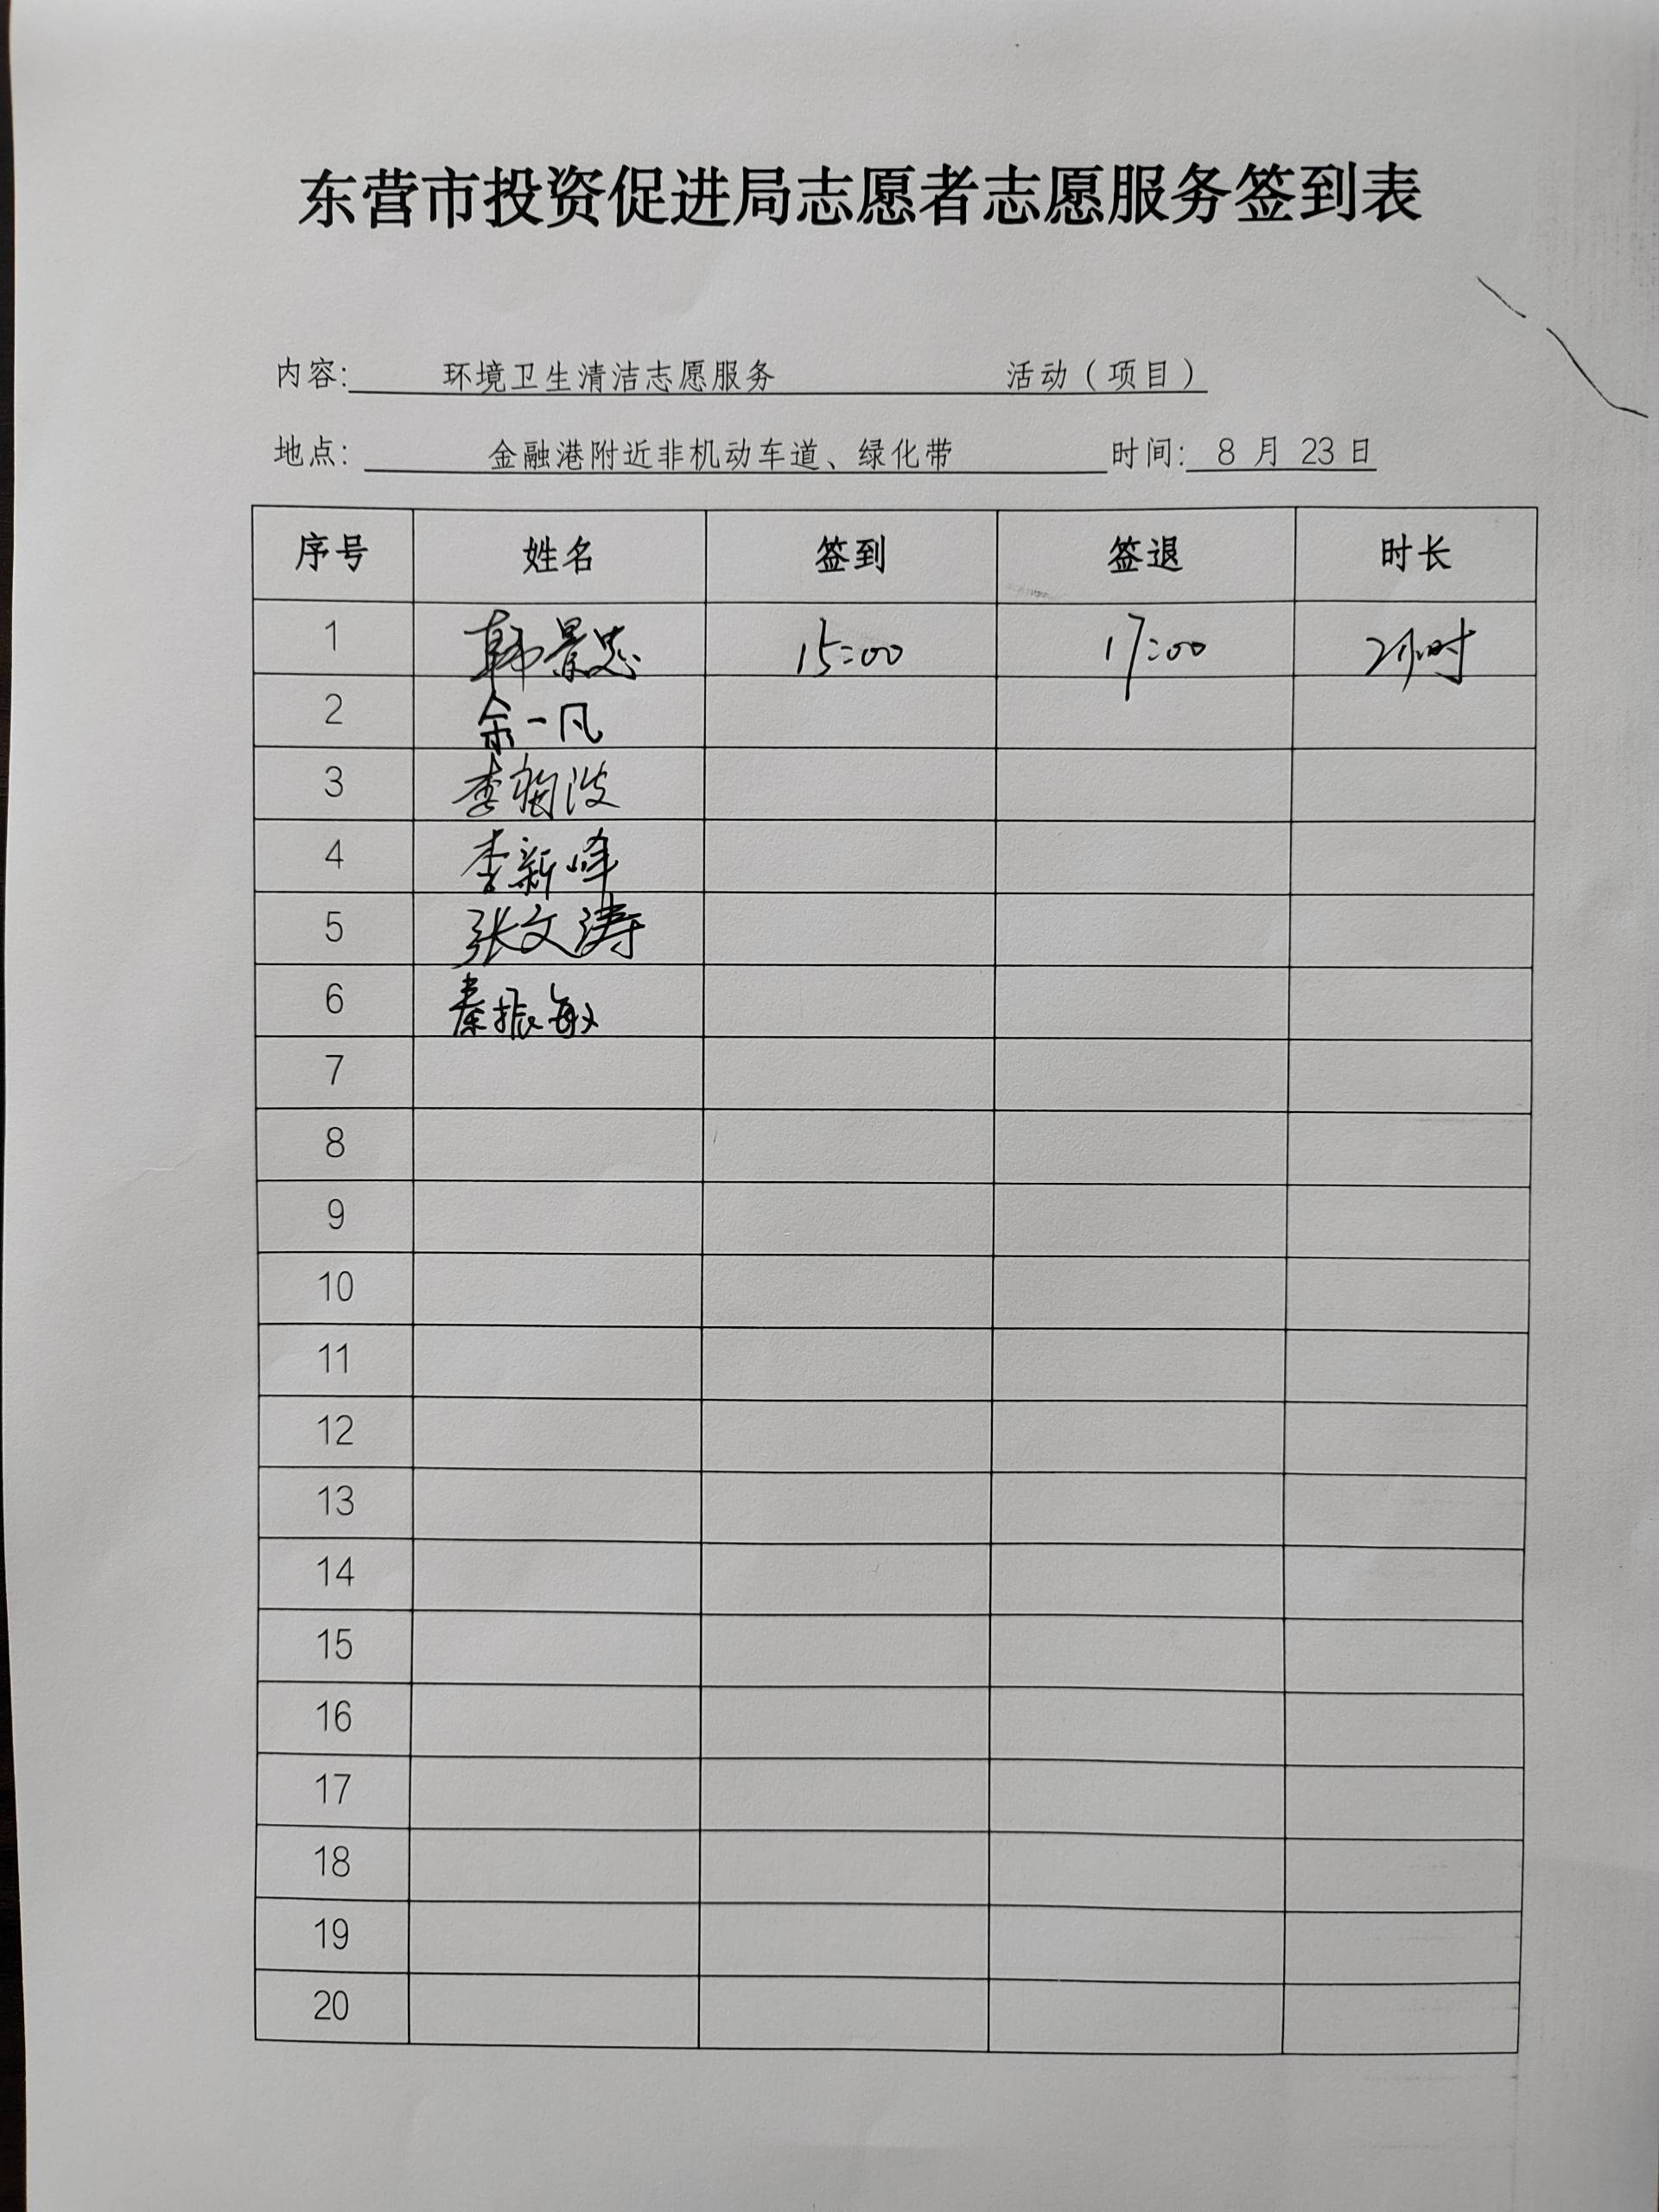 东营市投资促进局志愿者志愿服务签到表
内容: 环境卫生清洁志愿服务 活动（项目）
地点: 金融港附近非机动车道、绿化带 时间: 8 月 23 日
序号 姓名 签到 签退 时长
1 韩景忠 15:00 17:00 2小时
2 余一凡
3 李 波
4 李新峰
5 张文涛
6 秦振敏
7
8
9
10
11
12
13
14
15
16
17
18
19
20